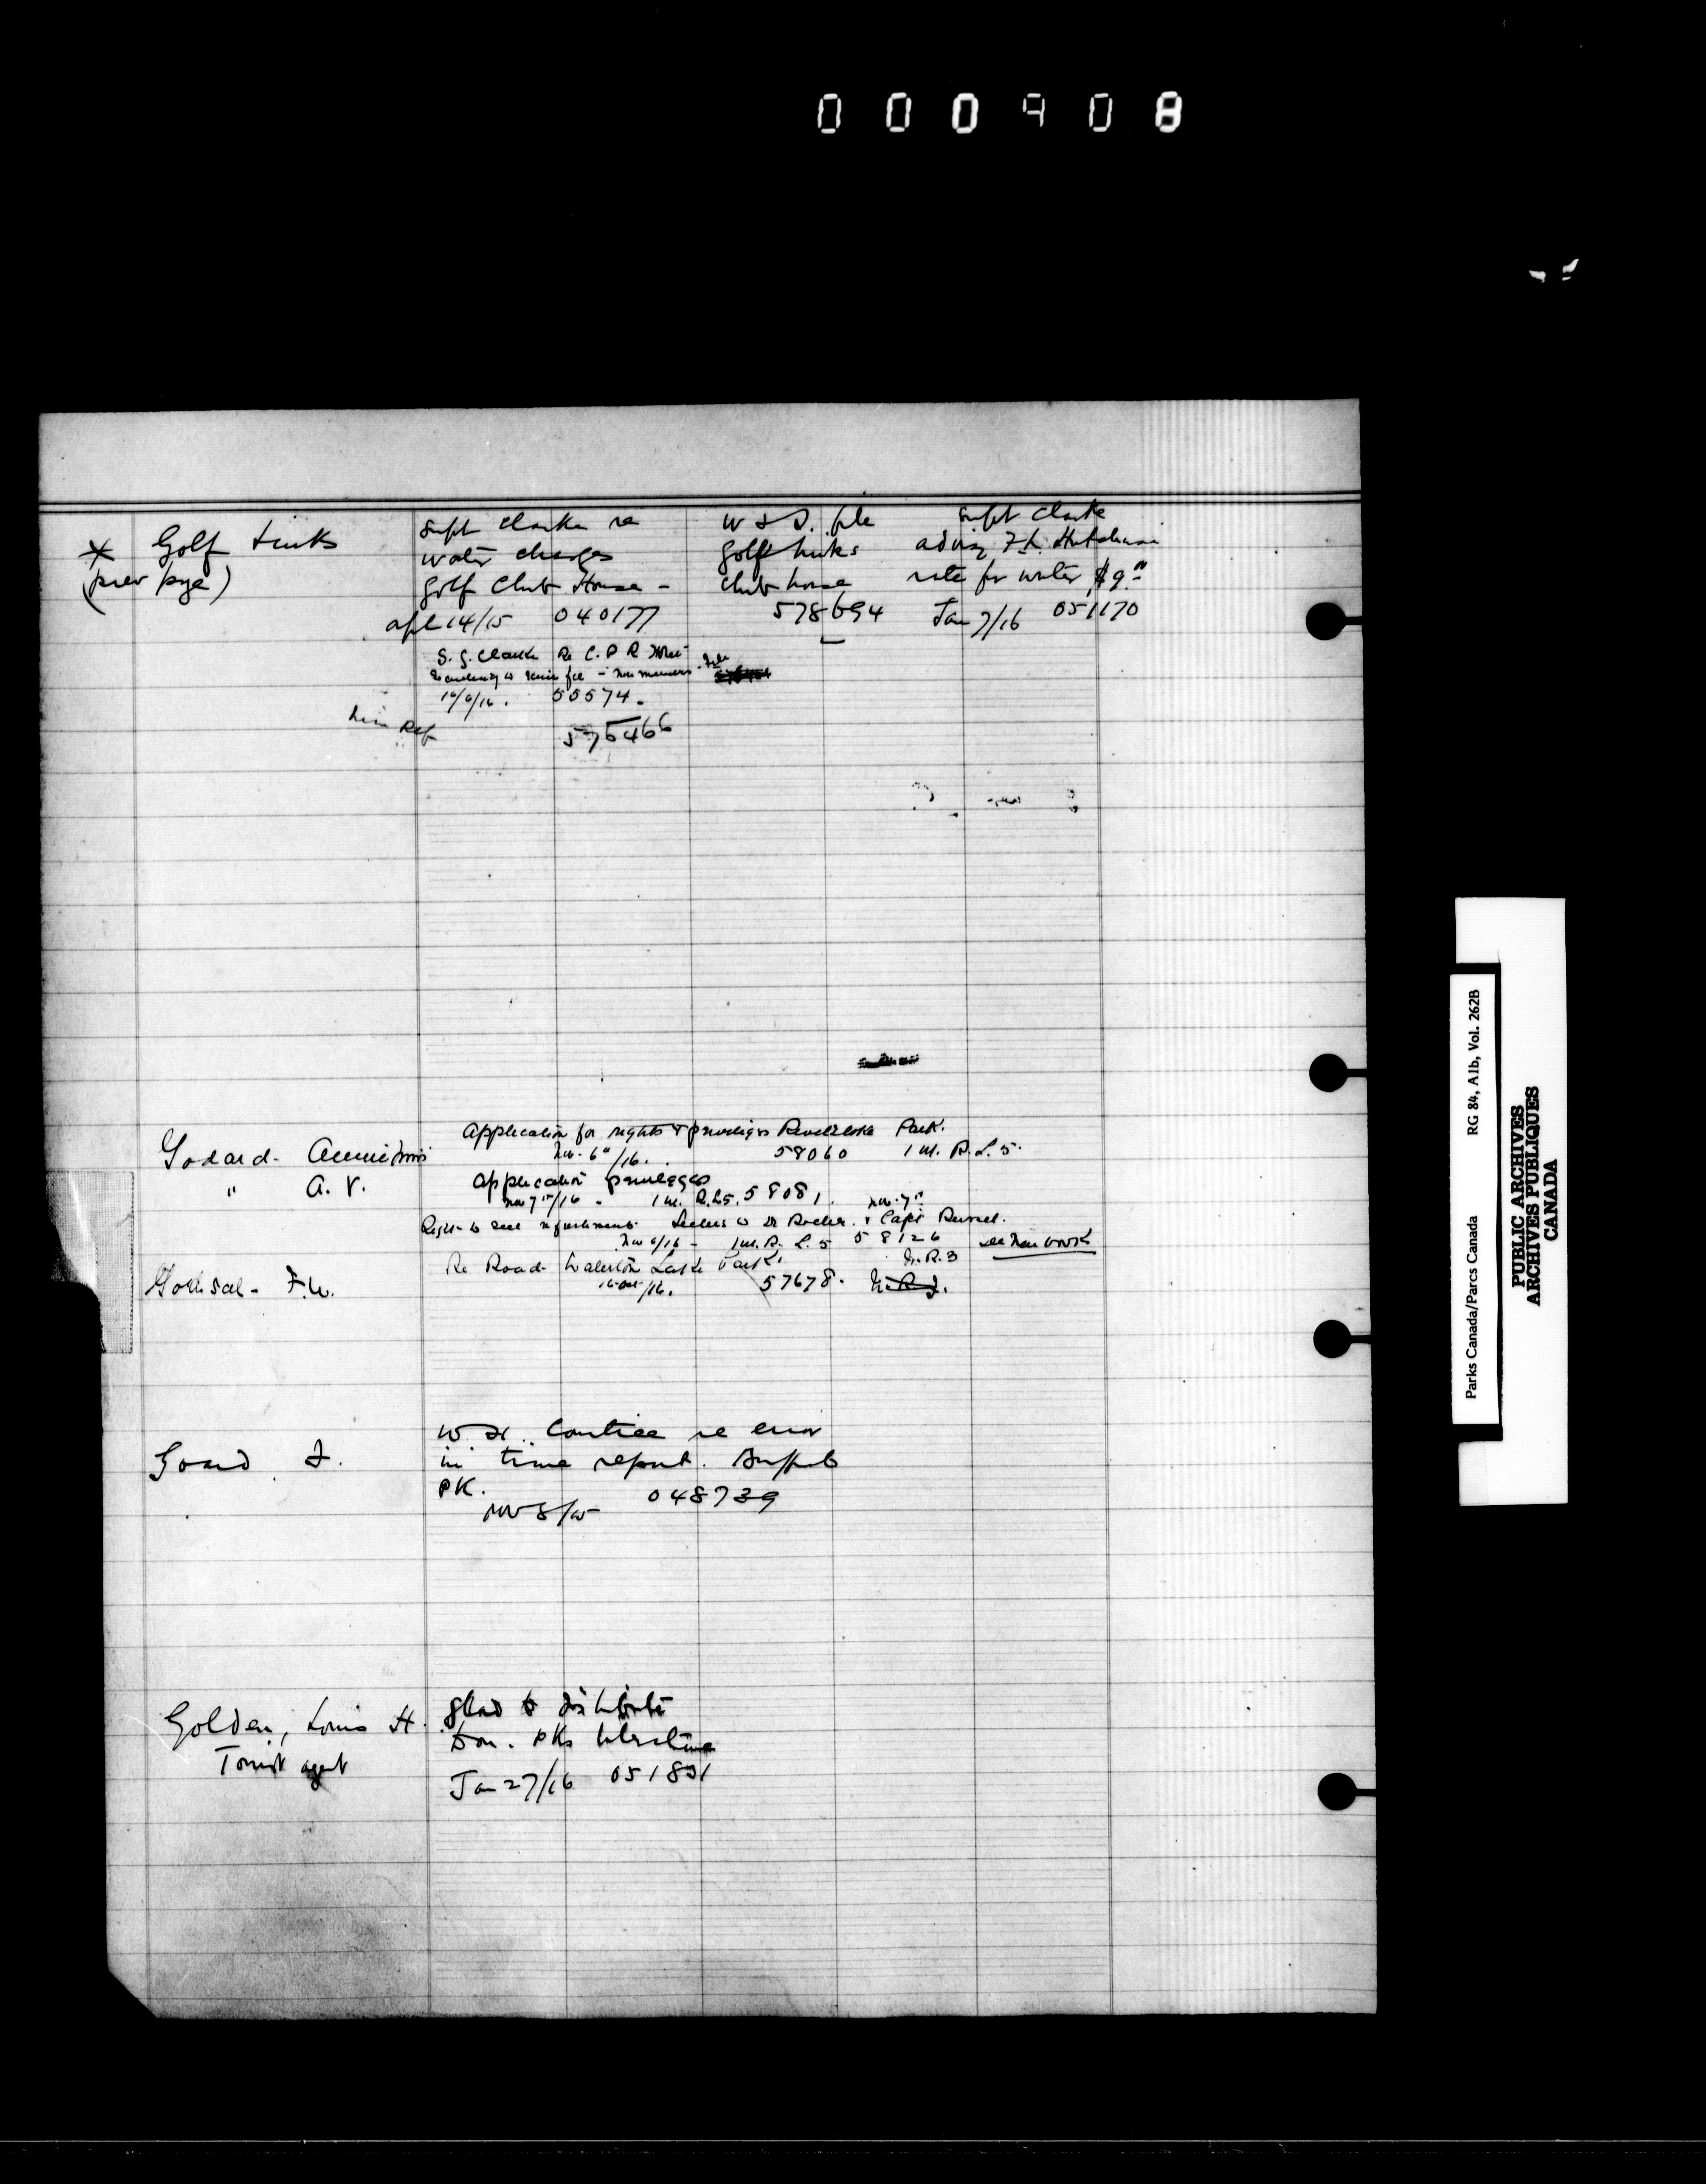 000908
* Golf Links
(prev page)
Supt Clarke re
water charges
Golf Club House -
apl 14/15 040177
W & S. file
Golf Links
Club house
578694
Supt Clarke
advising F. L. Hutchison
rate for water $9.00
Jan 7/16 051170
S. J. Clarke Re C. P. R Hotel
fee - non members.
10/6/16. 55574.
Ref 575466
Godard. Annie
Application for rights & privileges Revelstoke Park.
Nov. 6th/16. 58060 1 M. R. L. 5.
" A. V.
Application privileges
Nov 7th/16 - 1 M. R. L. 5. 58081. Nov. 7th
Right to sell refreshments. Letters to Dr Roche. & Capt Russel.
Nov 6/16 - 1 M. R. L. 5 58126 see New book
F. W.
Re Road Waterton Lake Park.
16 Oct/16. 57678.
W. R. 3
Goard J.
re error
in time report. Buffalo
PK.
Nov 8/15 048739
Golden, Louis H.
Tourist agent
glad to distribute
Dom. PKs literature
Jan 27/16 051831
Parks Canada/Parcs Canada RG 84, A1b, Vol. 262B
PUBLIC ARCHIVES
ARCHIVES PUBLIQUES
CANADA